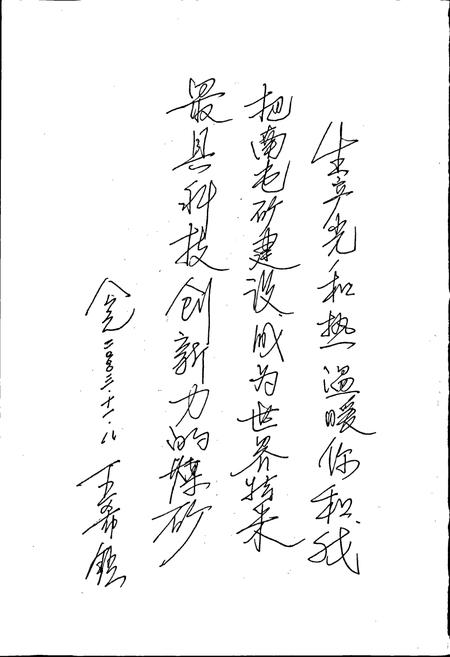 生产光和热温暖你和我
把南屯矿建设成为世界特来
最具科技创新力的煤矿
二〇〇三·十一·八 王希